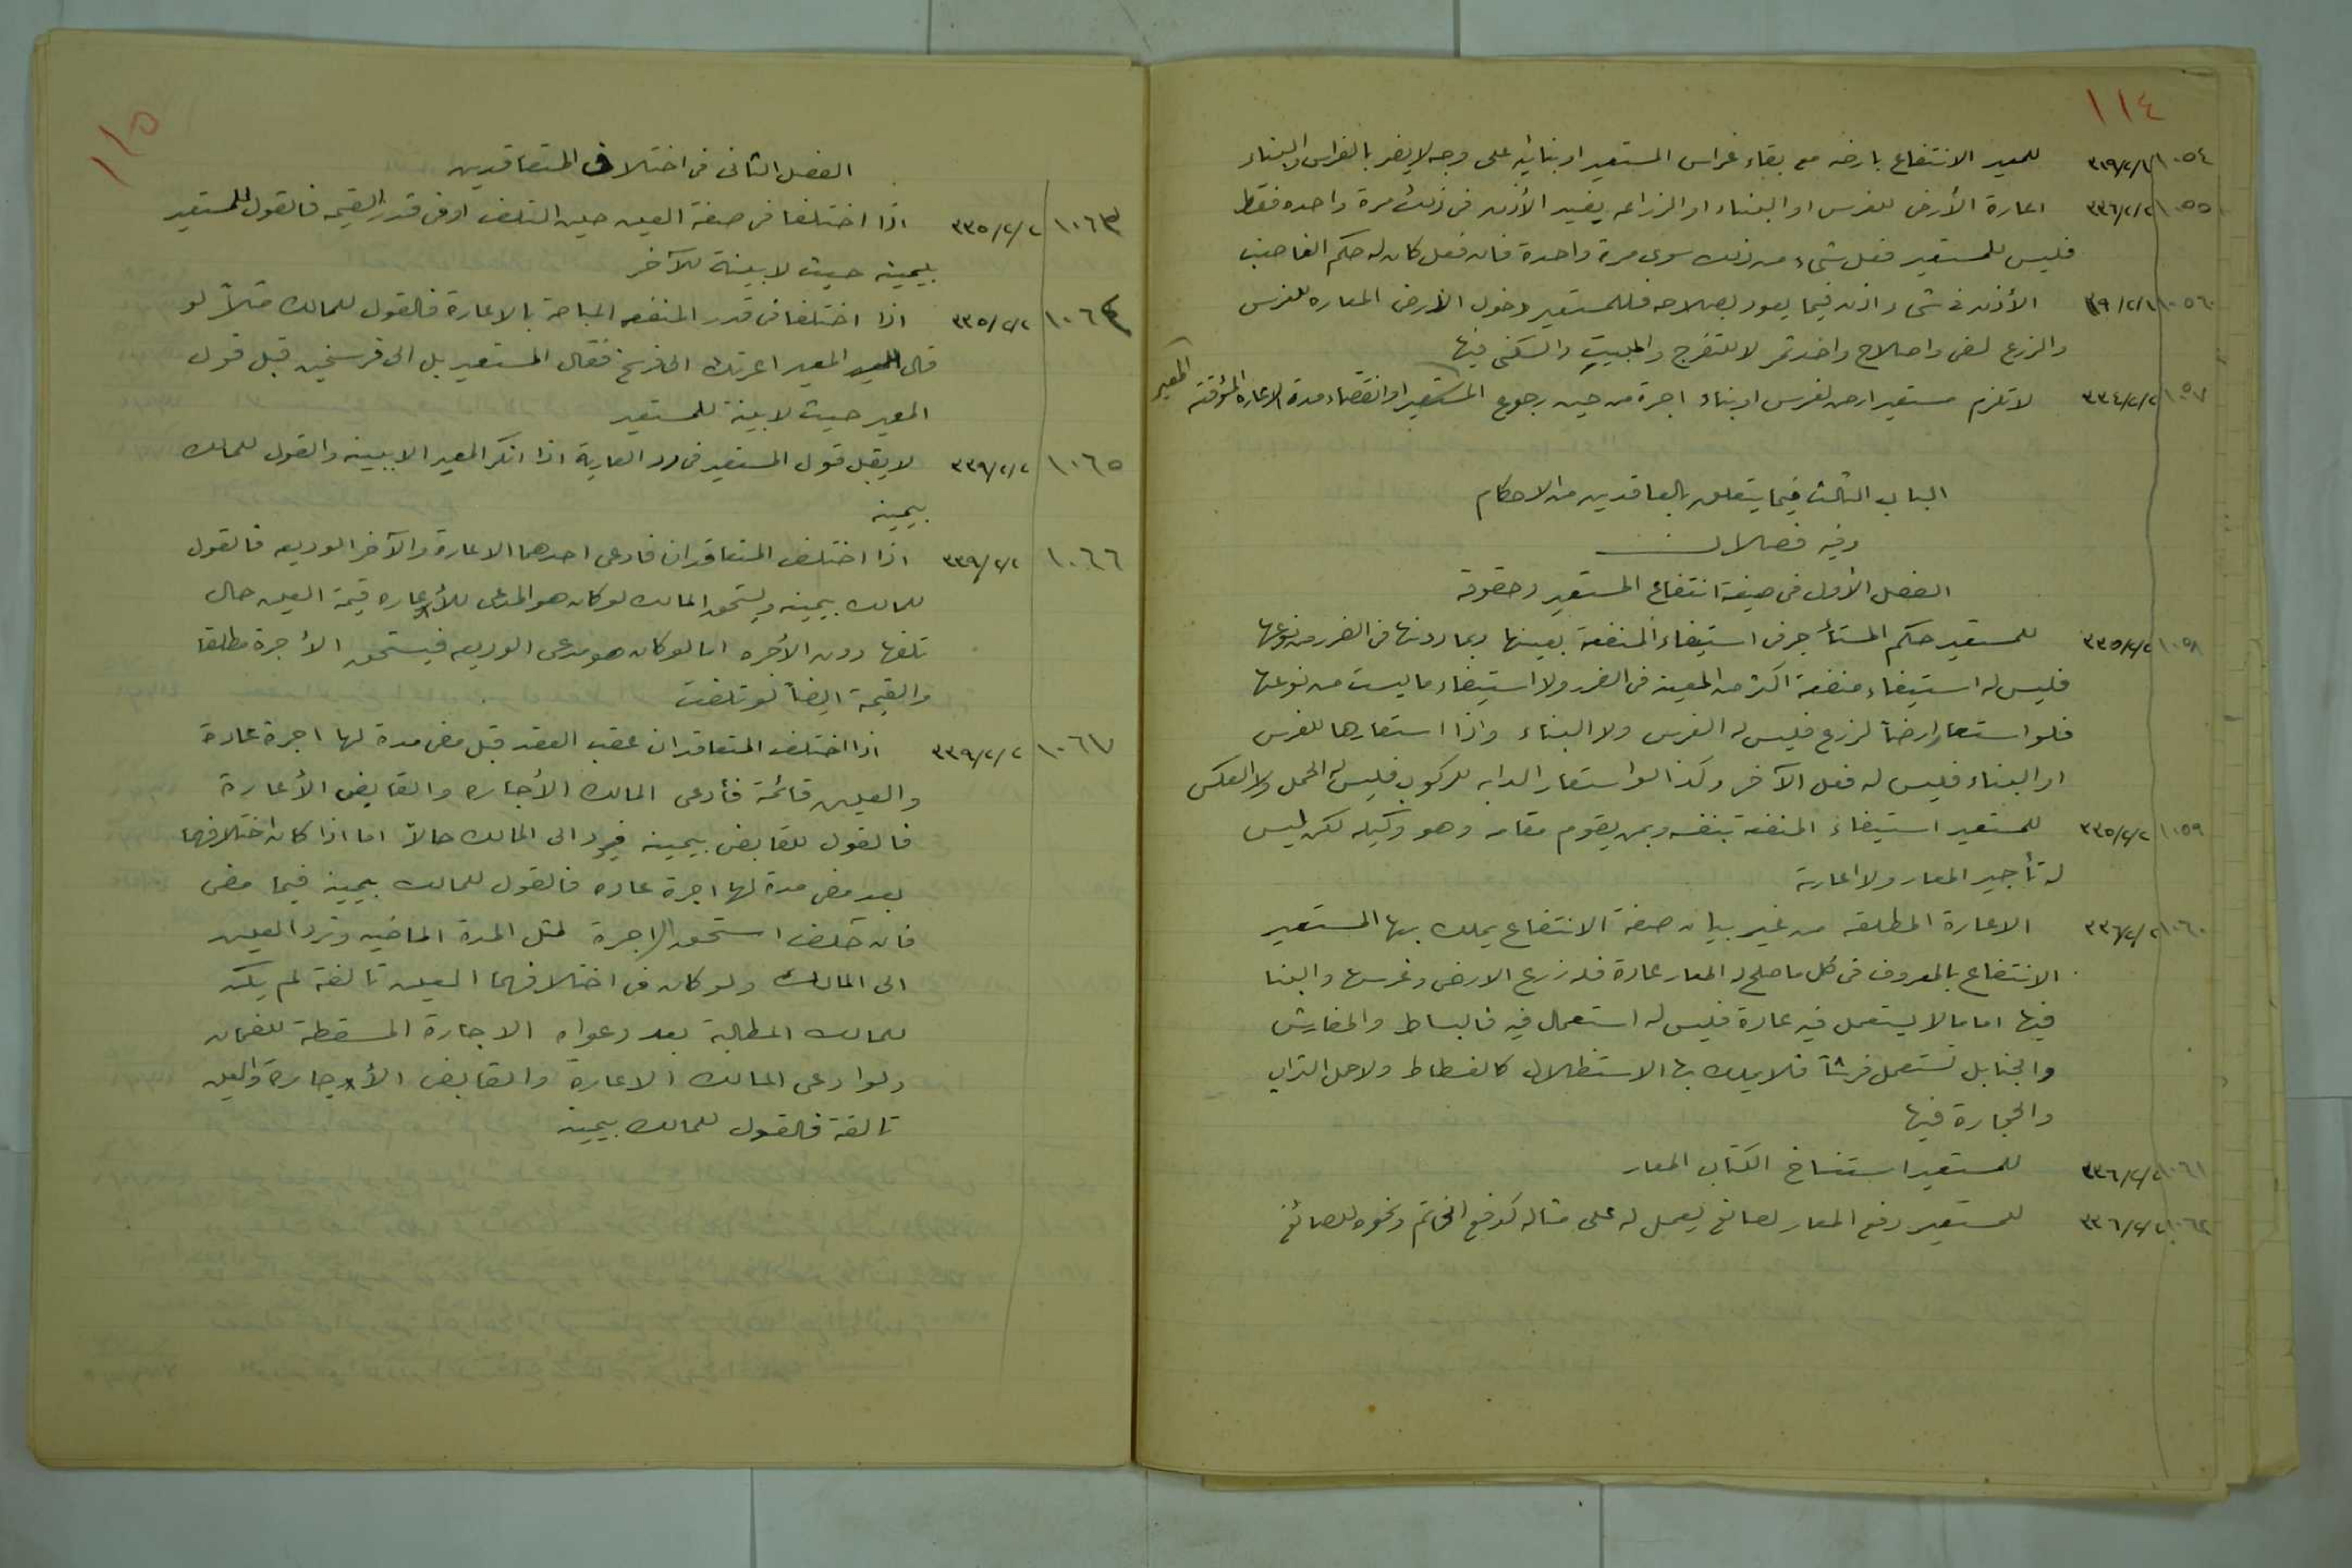 ١١٤
١٠٥٤ ٣٢٩/٢/٢ للمعير الانتفاع بارضه مع بقاء غراس المستعير او بنائه على وجه لا يضر بالغراس والبناء
١٠٥٥ ٣٣٦/٢/٢ اعارة الأرض للغرس او البناء او الزراعه يفيد الأذن في ذلك مرة واحده فقط
فليس للمستعير فعل شيء من ذلك سوى مرة واحدة فان فعل كان له حكم الغاصب
١٠٥٦ الأذن في شيء اذن فيما يعود بصلاحه فللمستعير دخول الأرض المعاره للغرس
والزرع لسقي واصلاح واخذ ثمر لا للتفرج والمبيت والسكنى فيها
١٠٥٧ ٣٣٤/٢/٢ لا تلزم مستعير ارض لغرس او بناء اجرة من حين رجوع المعير او انقضاء مدة الاعاره المؤقته
الباب الثالث فيما يتعلق بالعاقدين من الاحكام
وفيه فصلان
الفصل الأول في صيغة انتفاع المستعير وحقوقه
١٠٥٨ ٣٣٥/٢/٢ للمستعير حكم المستأجر في استيفاء المنفعة بعينها وبما دونها في الضرر من نوعها
فليس له استيفاء منفعة اكثر من المعينه في الضرر ولا استيفاء ما ليست من نوعها
فلو استعار ارضاً لزرع فليس له الغرس ولا البناء واذا استعارها للغرس
او البناء فليس له فعل الآخر وكذا لو استعار الدابه للركوب فليس له الحمل ولا العكس
١٠٥٩ ٣٣٥/٢/٢ للمستعير استيفاء المنفعة بنفسه وبمن يقوم مقامه وهو وكيله لكن ليس
له تأجير المعار ولا اعارته
١٠٦٠ ٣٣٦/٢/٢ الاعارة المطلقه من غير بيان صفة الانتفاع يملك بها المستعير
الانتفاع بالمعروف في كل ما صلح له المعار عادة فله زرع الارض وغرسها والبنا
فيها اما ما لا يستعمل فيه عادة فليس له استعماله فيه فالبساط والمفارش
والحنابل تستعمل فرشاً فلا يملك بها الاستظلال كالفسطاط ولا حمل التراب
والحجارة فيها
١٠٦١ ٣٣٦/٢/٢ للمستعير استنساخ الكتاب المعار
١٠٦٢ ٣٣٦/٢/٢ للمستعير دفع المعار لصانع ليعمل له على مثاله كدفع الخاتم ونحوه للصائغ
١١٥
الفصل الثانى في اختلاف المتعاقدين
١٠٦٣ ٣٣٥/٢/٢ اذا اختلفا في صفة العين حين التلف او في قدر القيمه فالقول للمستعير
بيمينه حيث لا بينة للآخر
١٠٦٤ ٣٣٥/٢/٢ اذا اختلفا في قدر المنفعه المباحة بالاعارة فالقول للمالك مثلاً لو
قال المعير اعرتك الى فرسخ فقال المستعير بل الى فرسخين قبل قول
المعير حيث لا بينة للمستعير
١٠٦٥ ٣٣٩/٢/٢ لا يقبل قول المستعير في رد العارية اذا انكر المعير الا ببينه والقول للمالك
بيمينه
١٠٦٦ ٣٣٩/٢/٢ اذا اختلف المتعاقدان فادعى احدهما الاعارة والآخر الوديعه فالقول
للمالك بيمينه ويستحق المالك لو كان هو المدعى للأعاره قيمة العين حال
تلفها دون الأجره اما لو كان هو مدعى الوديعه فيستحق الأجرة مطلقا
والقيمة ايضاً لو تلفت
١٠٦٧ ٣٣٩/٢/٢ اذا اختلف المتعاقدان عقب العقد قبل مضى مدة لها اجرة عادة
والعين قائمة فأدعى المالك الأجاره والقابض الأعارة
فالقول للقابض بيمينه فيرد الى المالك حالاً اما اذا كان اختلافهما
بعد مضى مدة لها اجرة عاده فالقول للمالك بيمينه فيما مضى
فان حلف استحق الاجرة لمثل المدة الماضيه وترد العين
الى المالك ولو كان في اختلافهما العين تالفة لم يكن
للمالك المطالبة بعد دعواه الاجارة المسقطة للضمان
ولو ادعى المالك الاعارة والقابض الأجارة والعين
تالفة فالقول للمالك بيمينه